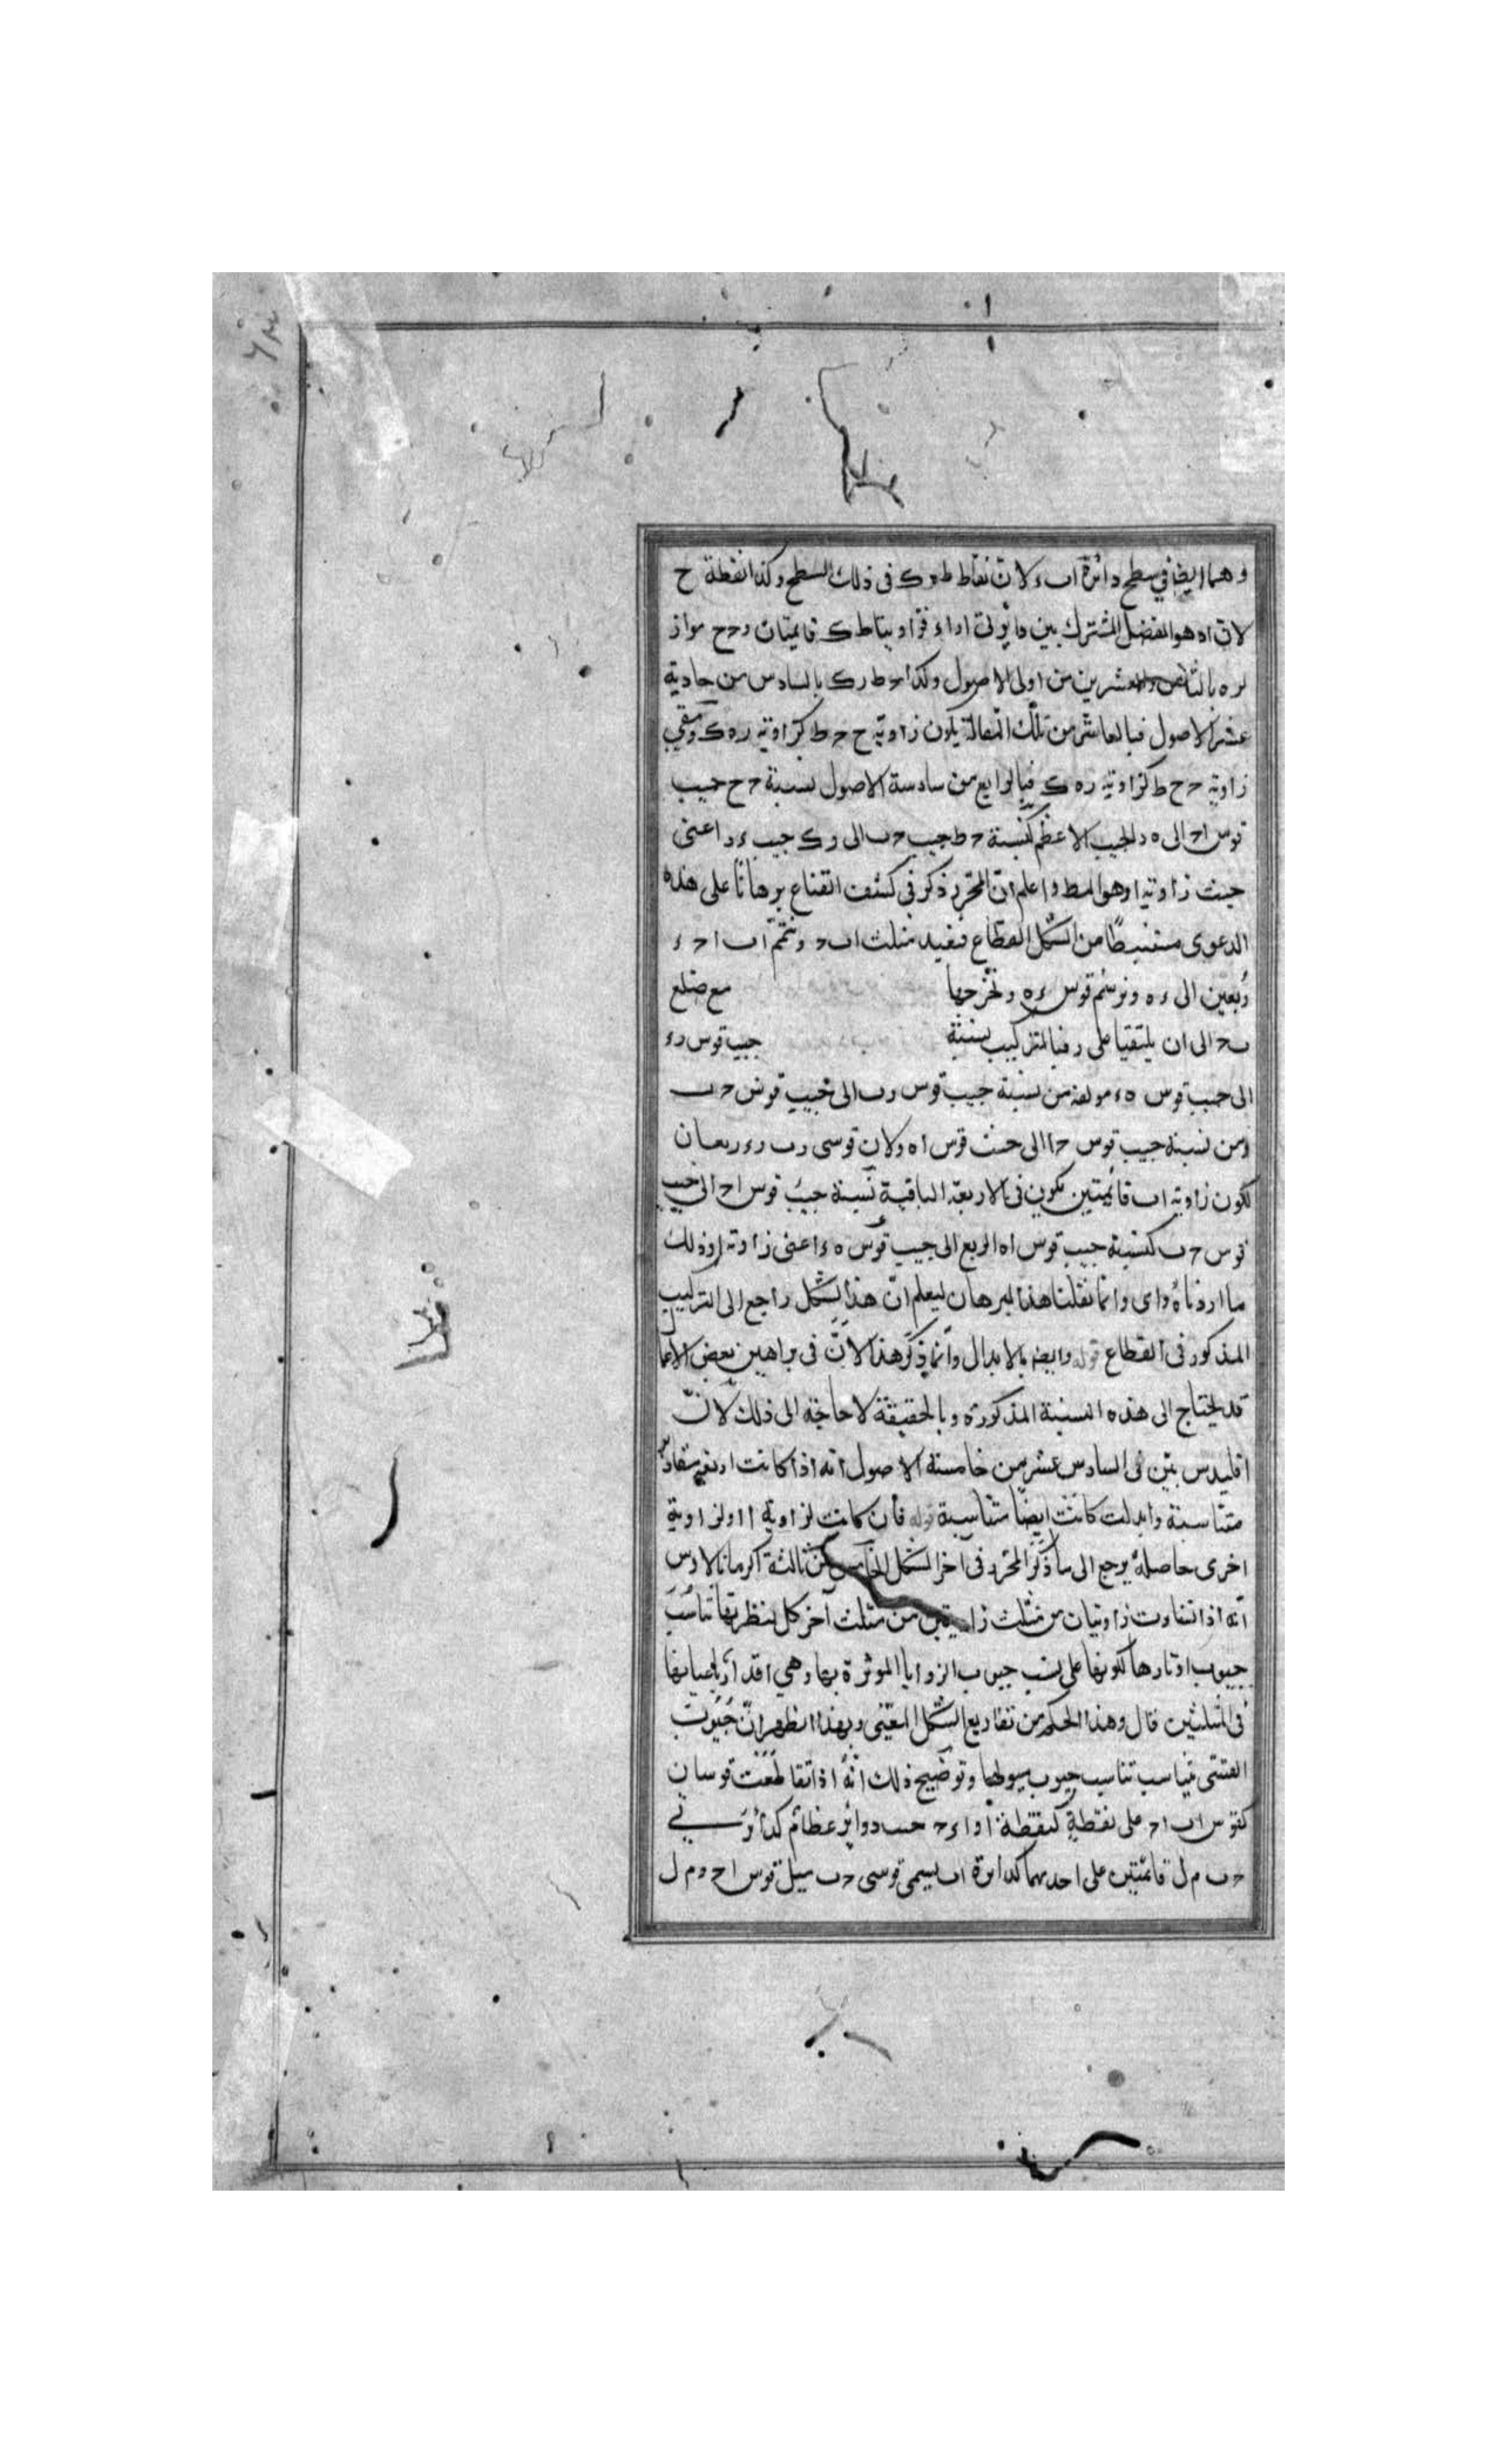 وهما ايضا في سطح دائرة اب ء لان نقاط ط ه ك فى ذلك السطح وكذا نقطة ح
لان اه هو الفصل المشترك بين دائرتى اواء فزاويتا ط ك قايمتان و ح ح مواز
لره بالثامن والعشرين من اولى الاصول وكذا ح ط رك بالسادس من حادية
عشر الاصول فبالعاشر من تلك المقالة يكون زاوية ح ح ط كزاوية ره ك وبقى
زاوية ح ح ط كزاوية ره ك فبالرابع من سادسة الاصول نسبة ح ح جيب
قوس اح الى ه ر الجيب الاعظم كنسبة ح ط جيب ح ب الى رك جيب ء ر اعنى
جيب زاوية ا وهو المط واعلم ان المحرر ذكر فى كشف القناع برهانا على هذه
الدعوى مستنبطا من الشكل القطاع فنعيد مثلث اب ح ونتمم اب ا ح ء
ربعين الى ء ه ونرسم قوس ء ه ونخرجها مع ضلع
ب ح الى ان يلتقيا على ر فبالتركيب نسبة جيب قوس ر ء
الى جيب قوس ه ء مولفة من نسبة جيب قوس رب الى جيب قوس ح ب
ومن نسبة جيب قوس ح ا الى جيب قوس اه ولان قوسى رب رء ربعان
لكون زاوية اب قائمتين يكون فى الاربعة الباقية نسبة جيب قوس اح الى جيب
قوس ح ب كنسبة جيب قوس اه الربع الى جيب قوس ه ء اعنى زاوية ا وذلك
ما اردناه واى وانما نقلنا هذا البرهان ليعلم ان هذا الشكل راجع الى التركيب
المذكور فى القطاع قوله وايضا بالابدال وانما ذكر هذا لان فى براهين بعض الاعما
قد يحتاج الى هذه النسبة المذكورة وبالحقيقة لا حاجة الى ذلك لان
اقليدس بين فى السادس عشر من خامسة الاصول انه اذا كانت اربعة مقادير
متناسبة وابدلت كانت ايضا متناسبة قوله فان كانت لزاوية ا او لزاوية
اخرى حاصله يرجع الى ما ذكر المحرر فى آخر الشكل الخامس من ثالثة اكرمانالاوس
انه اذا تساوت زاويتان من مثلث زاويتين من مثلث آخر كل لنظيرتها تناسب
جيوب اوتارها لكونها على نسب جيوب الزوايا الموترة بها وهي اقدار باعيانها
فى المثلثين قال وهذا الحكم من تفاريع الشكل المغنى وبهذا يظهر ان جيوب
القسى تناسب تناسب جيوب ميولها وتوضيح ذلك انه اذا تقاطعت قوسان
كقوس اب اح على نقطة كنقطة ا واء ح دوائر عظام كدائرتى
ح ب م ل قائمتين على احديهما كدائرة اب يسمى قوسى ح ب ميل قوس اح و م ل